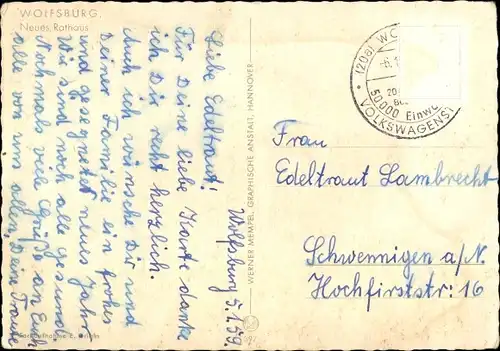 WOLFSBURG.
Neues Rathaus
Wolfsburg 5.1.59.
Liebe Edeltraut!
Für Deine liebe Karte danke
ich Dir recht herzlich.
Auch ich wünsche Dir und
Deiner Familie ein frohes
und gesegnetes neues Jahr.
Wir sind noch alle gesund
Nochmals viele Grüße an Euch
alle von uns allen, Deine Traute
WERNER MEMPEL, GRAPHISCHE ANSTALT, HANNOVER
(20a) WO
50000 Einwo
VOLKSWAGENST
Frau
Edeltraut Lambrecht
Schwennigen a/N.
Hochfirststr. 16